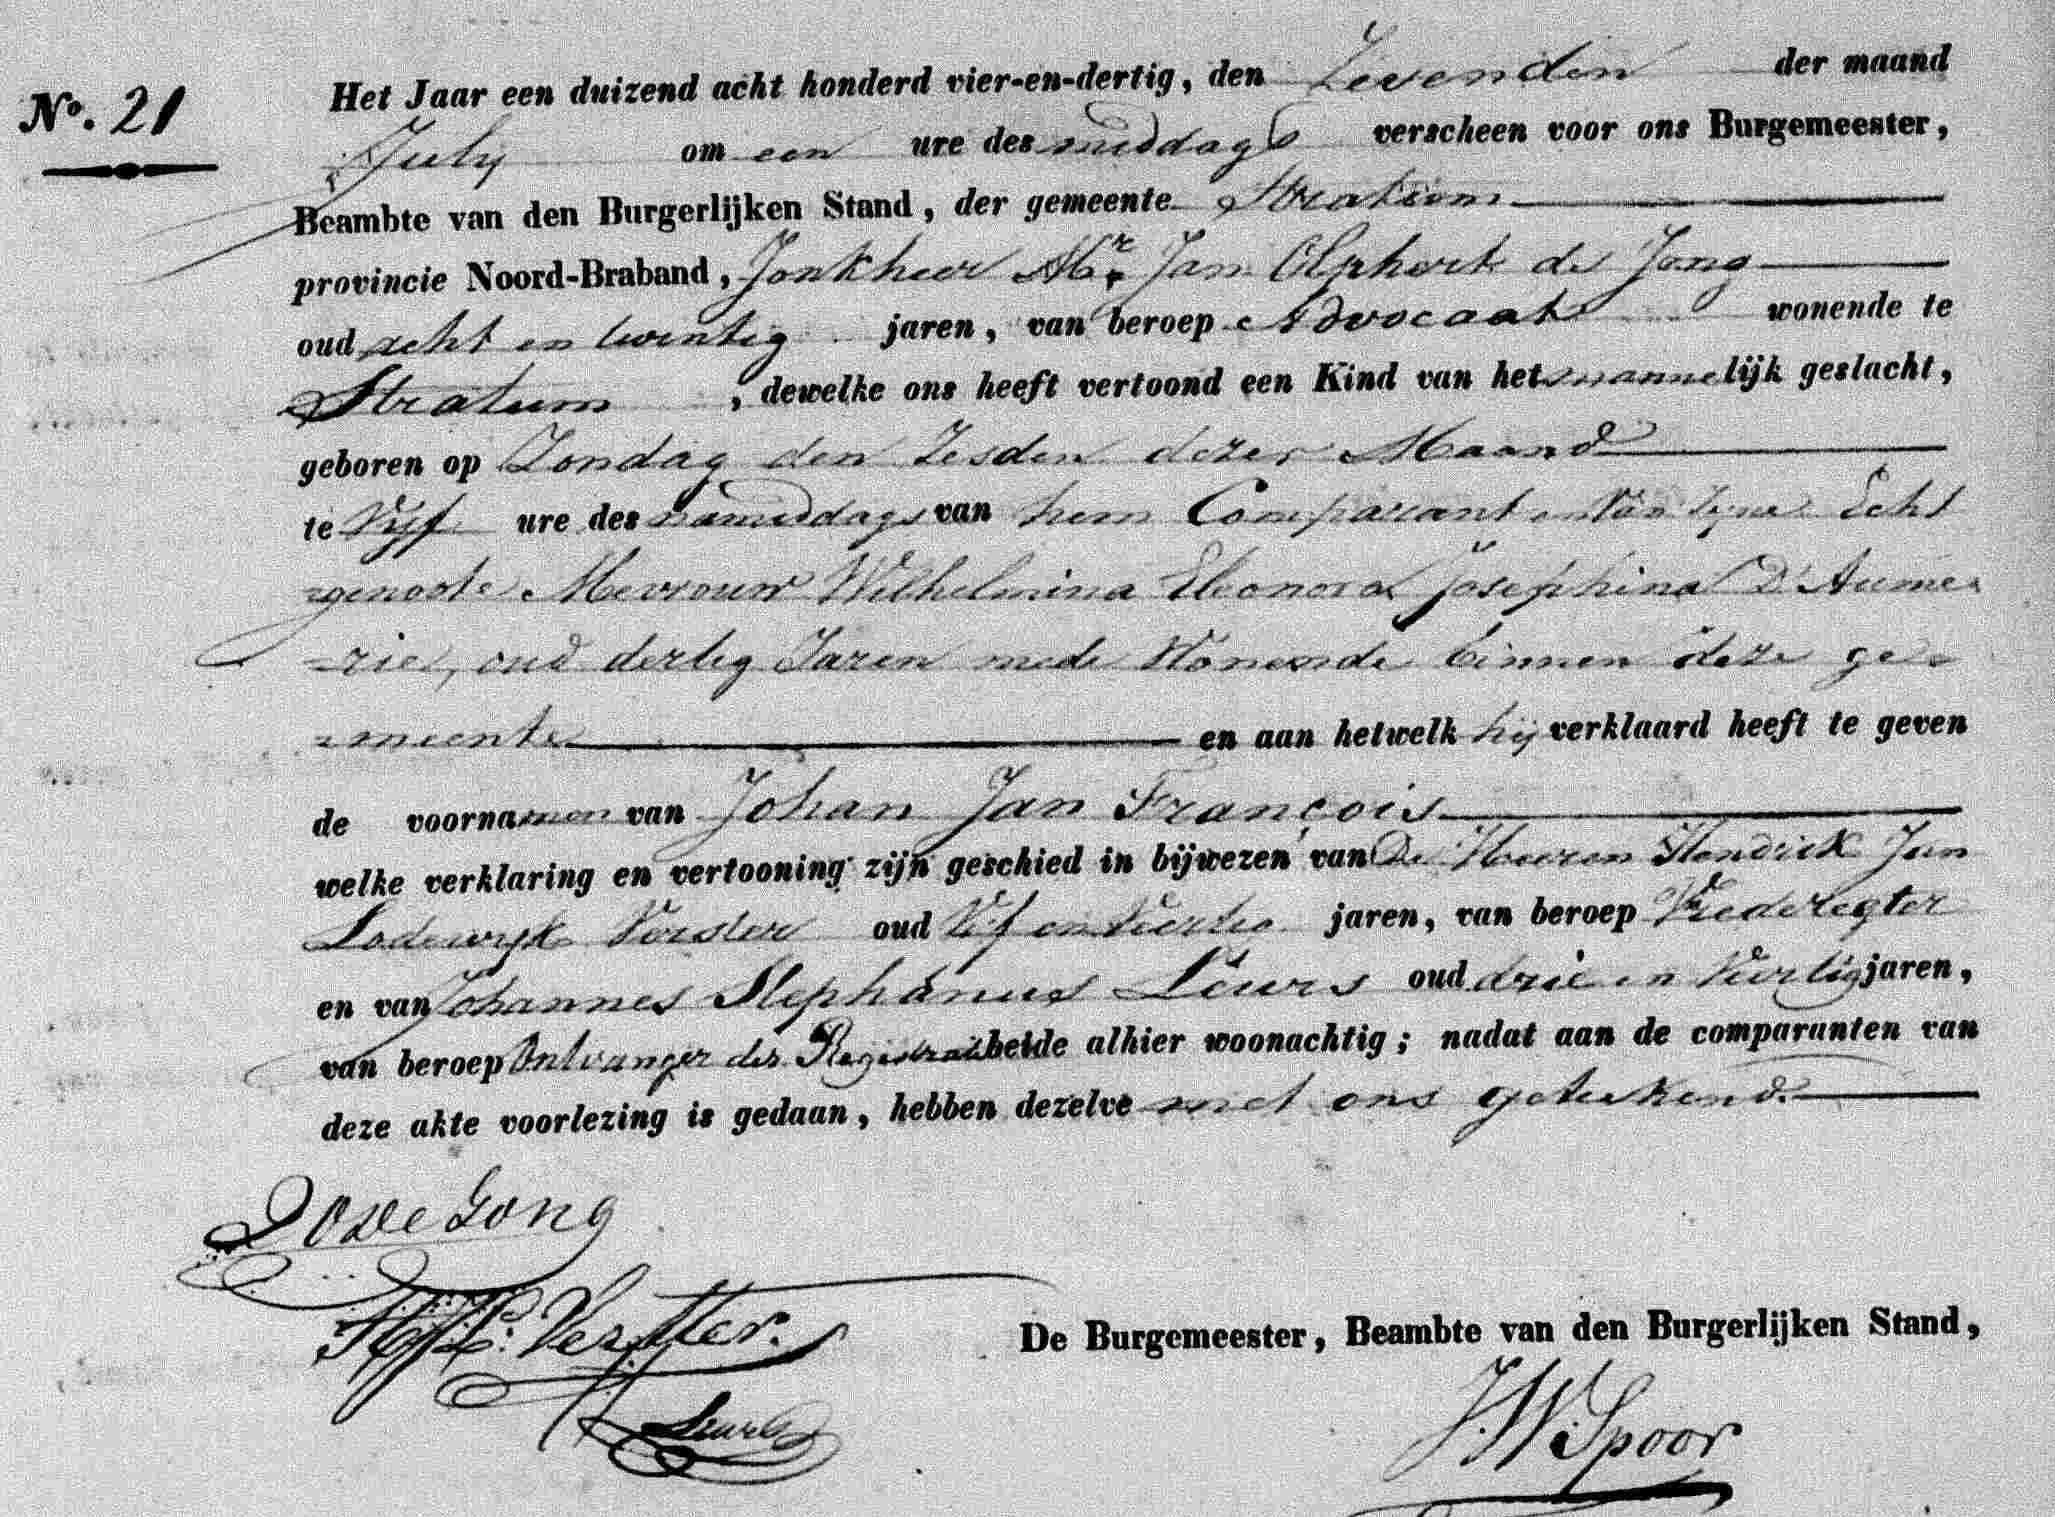 No. 21
Het Jaar een duizend acht honderd vier-en-dertig, den Zevenden der maand
July om een ure des middags verscheen voor ons Burgemeester,
Beambte van den Burgerlijken Stand, der gemeente Stratum
provincie Noord-Braband, Jonkheer Mr. Jan Olphert de Jong
oud acht en twintig jaren, van beroep Advocaat wonende te
Stratum, dewelke ons heeft vertoond een Kind van het mannelijk geslacht,
geboren op Zondag den Zesden dezer Maand
te Vijf ure des namiddags van hem Comparant en Van zyne Echt
genoote Mevrouw Wilhelmina Eleonora Josephina D'Aume-
rie, oud dertig Jaren mede Wonende binnen deze ge-
meente en aan hetwelk hij verklaard heeft te geven
de voornamen van Johan Jan François
welke verklaring en vertooning zijn geschied in bijwezen van De Heeren Hendrik Jan
Lodewyk Verster oud Vijf en Veertig jaren, van beroep Vrederegter
en van Johannes Stephanus Leurs oud drie en Veertig jaren,
van beroep Ontvanger der Registratie beide alhier woonachtig; nadat aan de comparanten van
deze akte voorlezing is gedaan, hebben dezelve met ons geteekend.
J O de Jong
HJL. Verster.
De Burgemeester, Beambte van den Burgerlijken Stand,
Leurs
J. W. Spoor